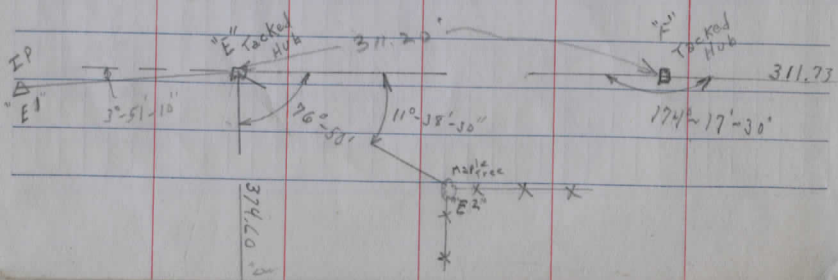 "E" Tacked Hub
311.20'
"F" Tacked Hub
IP
"E1"
3°-51'-10"
76°-50'
11°-38'-30"
174°-17'-30"
311.73
Maple Tree
"E2"
374.60